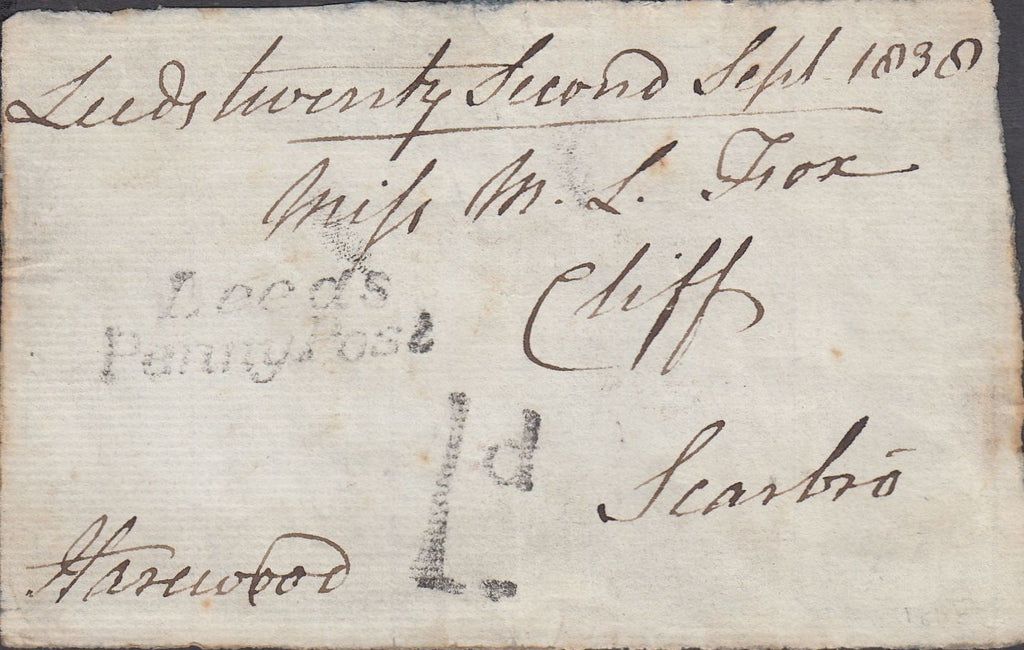 Leeds twenty Second Sept 1838
Miſs M. L. Fox
Cliff
Leeds
Penny Post
1d
Scarbro
Harewood